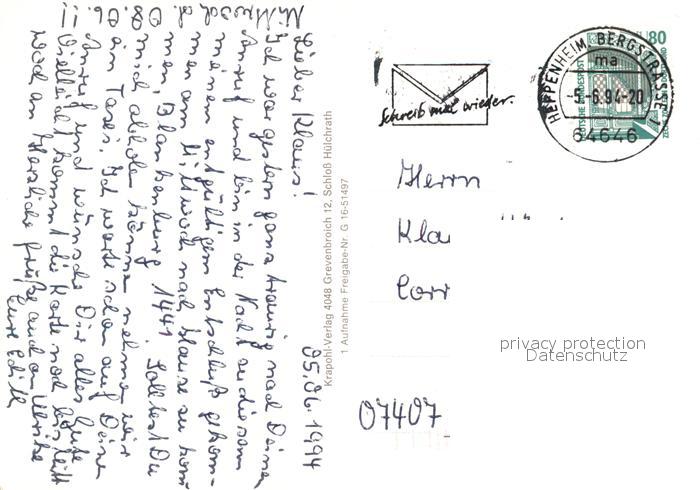 05.06.1994
Lieber Klaus!
Ich war gestern ganz traurig nach Deinem
Anruf und bin in der Nacht zu diesem
meinem entgültigem Entschluß gekom-
men, am Mittwoch nach Hause zu kom-
men, Blankenburg 1441. Solltest Du
mich abholen können nehmen wir
ein Taxi. Ich warte schon auf Deinen
Anruf und wünsche Dir alles Gute
Vielleicht kommt die Karte noch bis
Mittwoch d. 08.06.!!
noch an. Herzliche Grüße auch an Ulrike
Eure Edith
Krapohl-Verlag 4048 Grevenbroich 12, Schloß Hülchrath
1 Aufnahme Freigabe-Nr. G 16-51497
Schreib mal wieder.
HEPPENHEIM, BERGSTRASSE 1
ma
-5.-6.94-20
64646
80
DEUTSCHE BUNDESPOST
Herrn
Kla
Corr
07407
privacy protection
Datenschutz